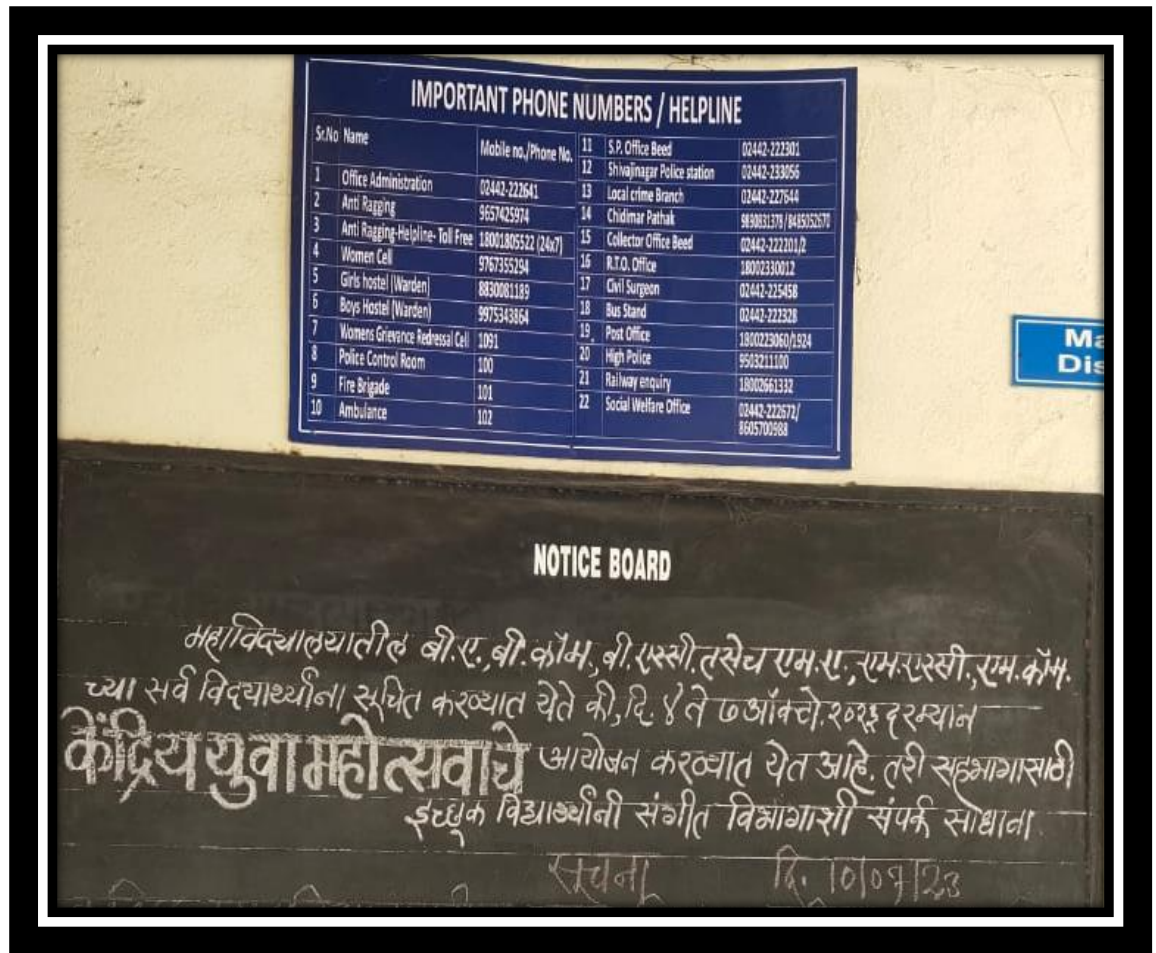 IMPORTANT PHONE NUMBERS / HELPLINE
Sr.No Name Mobile no./Phone No.
1 Office Administration 02442-222641
2 Anti Ragging 9657425974
3 Anti Ragging-Helpline- Toll Free 18001805522 (24x7)
4 Women Cell 9767355294
5 Girls hostel (Warden) 8830081189
6 Boys Hostel (Warden) 9975343864
7 Womens Grievance Redressal Cell 1091
8 Police Control Room 100
9 Fire Brigade 101
10 Ambulance 102
11 S.P. Office Beed 02442-222301
12 Shivajinagar Police station 02442-233056
13 Local crime Branch 02442-227644
14 Chidimar Pathak 9830831378/8485052670
15 Collector Office Beed 02442-222201/2
16 R.T.O. Office 18002330012
17 Civil Surgeon 02442-225458
18 Bus Stand 02442-222328
19 Post Office 1800223060/1924
20 High Police 9503211100
21 Railway enquiry 18002661332
22 Social Welfare Office 02442-222672/
8605700988
Ma
Dis
NOTICE BOARD
महाविद्यालयातील बी.ए.,बी.कॉम.,बी.एस्सी.तसेच एम.ए.,एम.एस्सी.,एम.कॉम.
च्या सर्व विद्यार्थ्यांना सूचित करण्यात येते की,दि. ४ ते ७ ऑक्टो.२०२३ दरम्यान
केंद्रिय युवा महोत्सवाचे आयोजन करण्यात येत आहे. तरी सहभागासाठी
इच्छूक विद्यार्थ्यांनी संगीत विभागाशी संपर्क साधावा
सूचना दि. 10/09/23